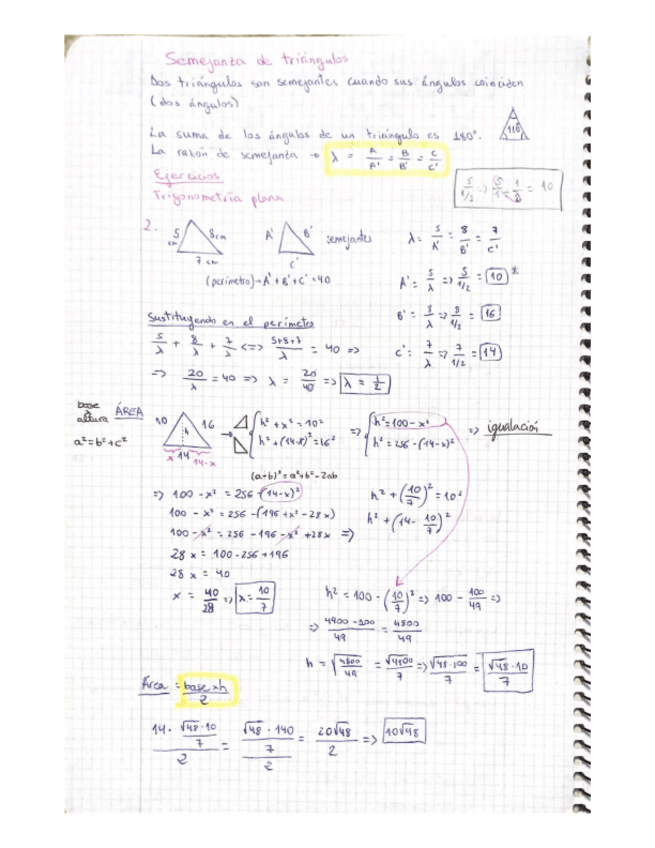 Semejanza de triángulos
Dos triángulos son semejantes cuando sus ángulos coinciden
(dos ángulos)
La suma de los ángulos de un triángulo es 180°.
La razón de semejanza → λ = A/A' = B/B' = C/C'
Ejercicios
5/(1/2) => = 10
Trigonometría plana
2. 5 cm 8cm 7 cm A' B' C' semejantes λ = 5/A' = 8/B' = 7/C'
(perímetro) → A' + B' + C' = 40
A' = 5/λ => 5/(1/2) = 10 *
B' = 8/λ => 8/(1/2) = 16
C' = 7/λ => 7/(1/2) = 14
Sustituyendo en el perímetro
5/λ + 8/λ + 7/λ <=> (5+8+7)/λ = 40 =>
=> 20/λ = 40 => λ = 20/40 => λ = 1/2
base x altura ÁREA
a² = b² + c²
10 16 h x 14 14-x
h² + x² = 10²
h² + (14-x)² = 16²
=> h² = 100 - x²
h² = 256 - (14-x)²
=> igualación
(a+b)² = a² + b² - 2ab
=> 100 - x² = 256 - (14-x)²
100 - x² = 256 - (196 + x² - 28x)
100 - x² = 256 - 196 - x² + 28x =>
28x = 100 - 256 + 196
28x = 40
x = 40/28 => x = 10/7
h² + (10/7)² = 10²
h² + (14 - 10/7)²
h² = 100 - (10/7)² => 100 - 100/49 =>
=> (4900 - 100)/49 = 4800/49
h = √(4800/49) = √4800/7 => √48·100/7 = √48·10/7
Área = base x h / 2
(14 · √48·10/7)/2 = (√48 · 140/7)/2 = 20√48/2 => 10√48